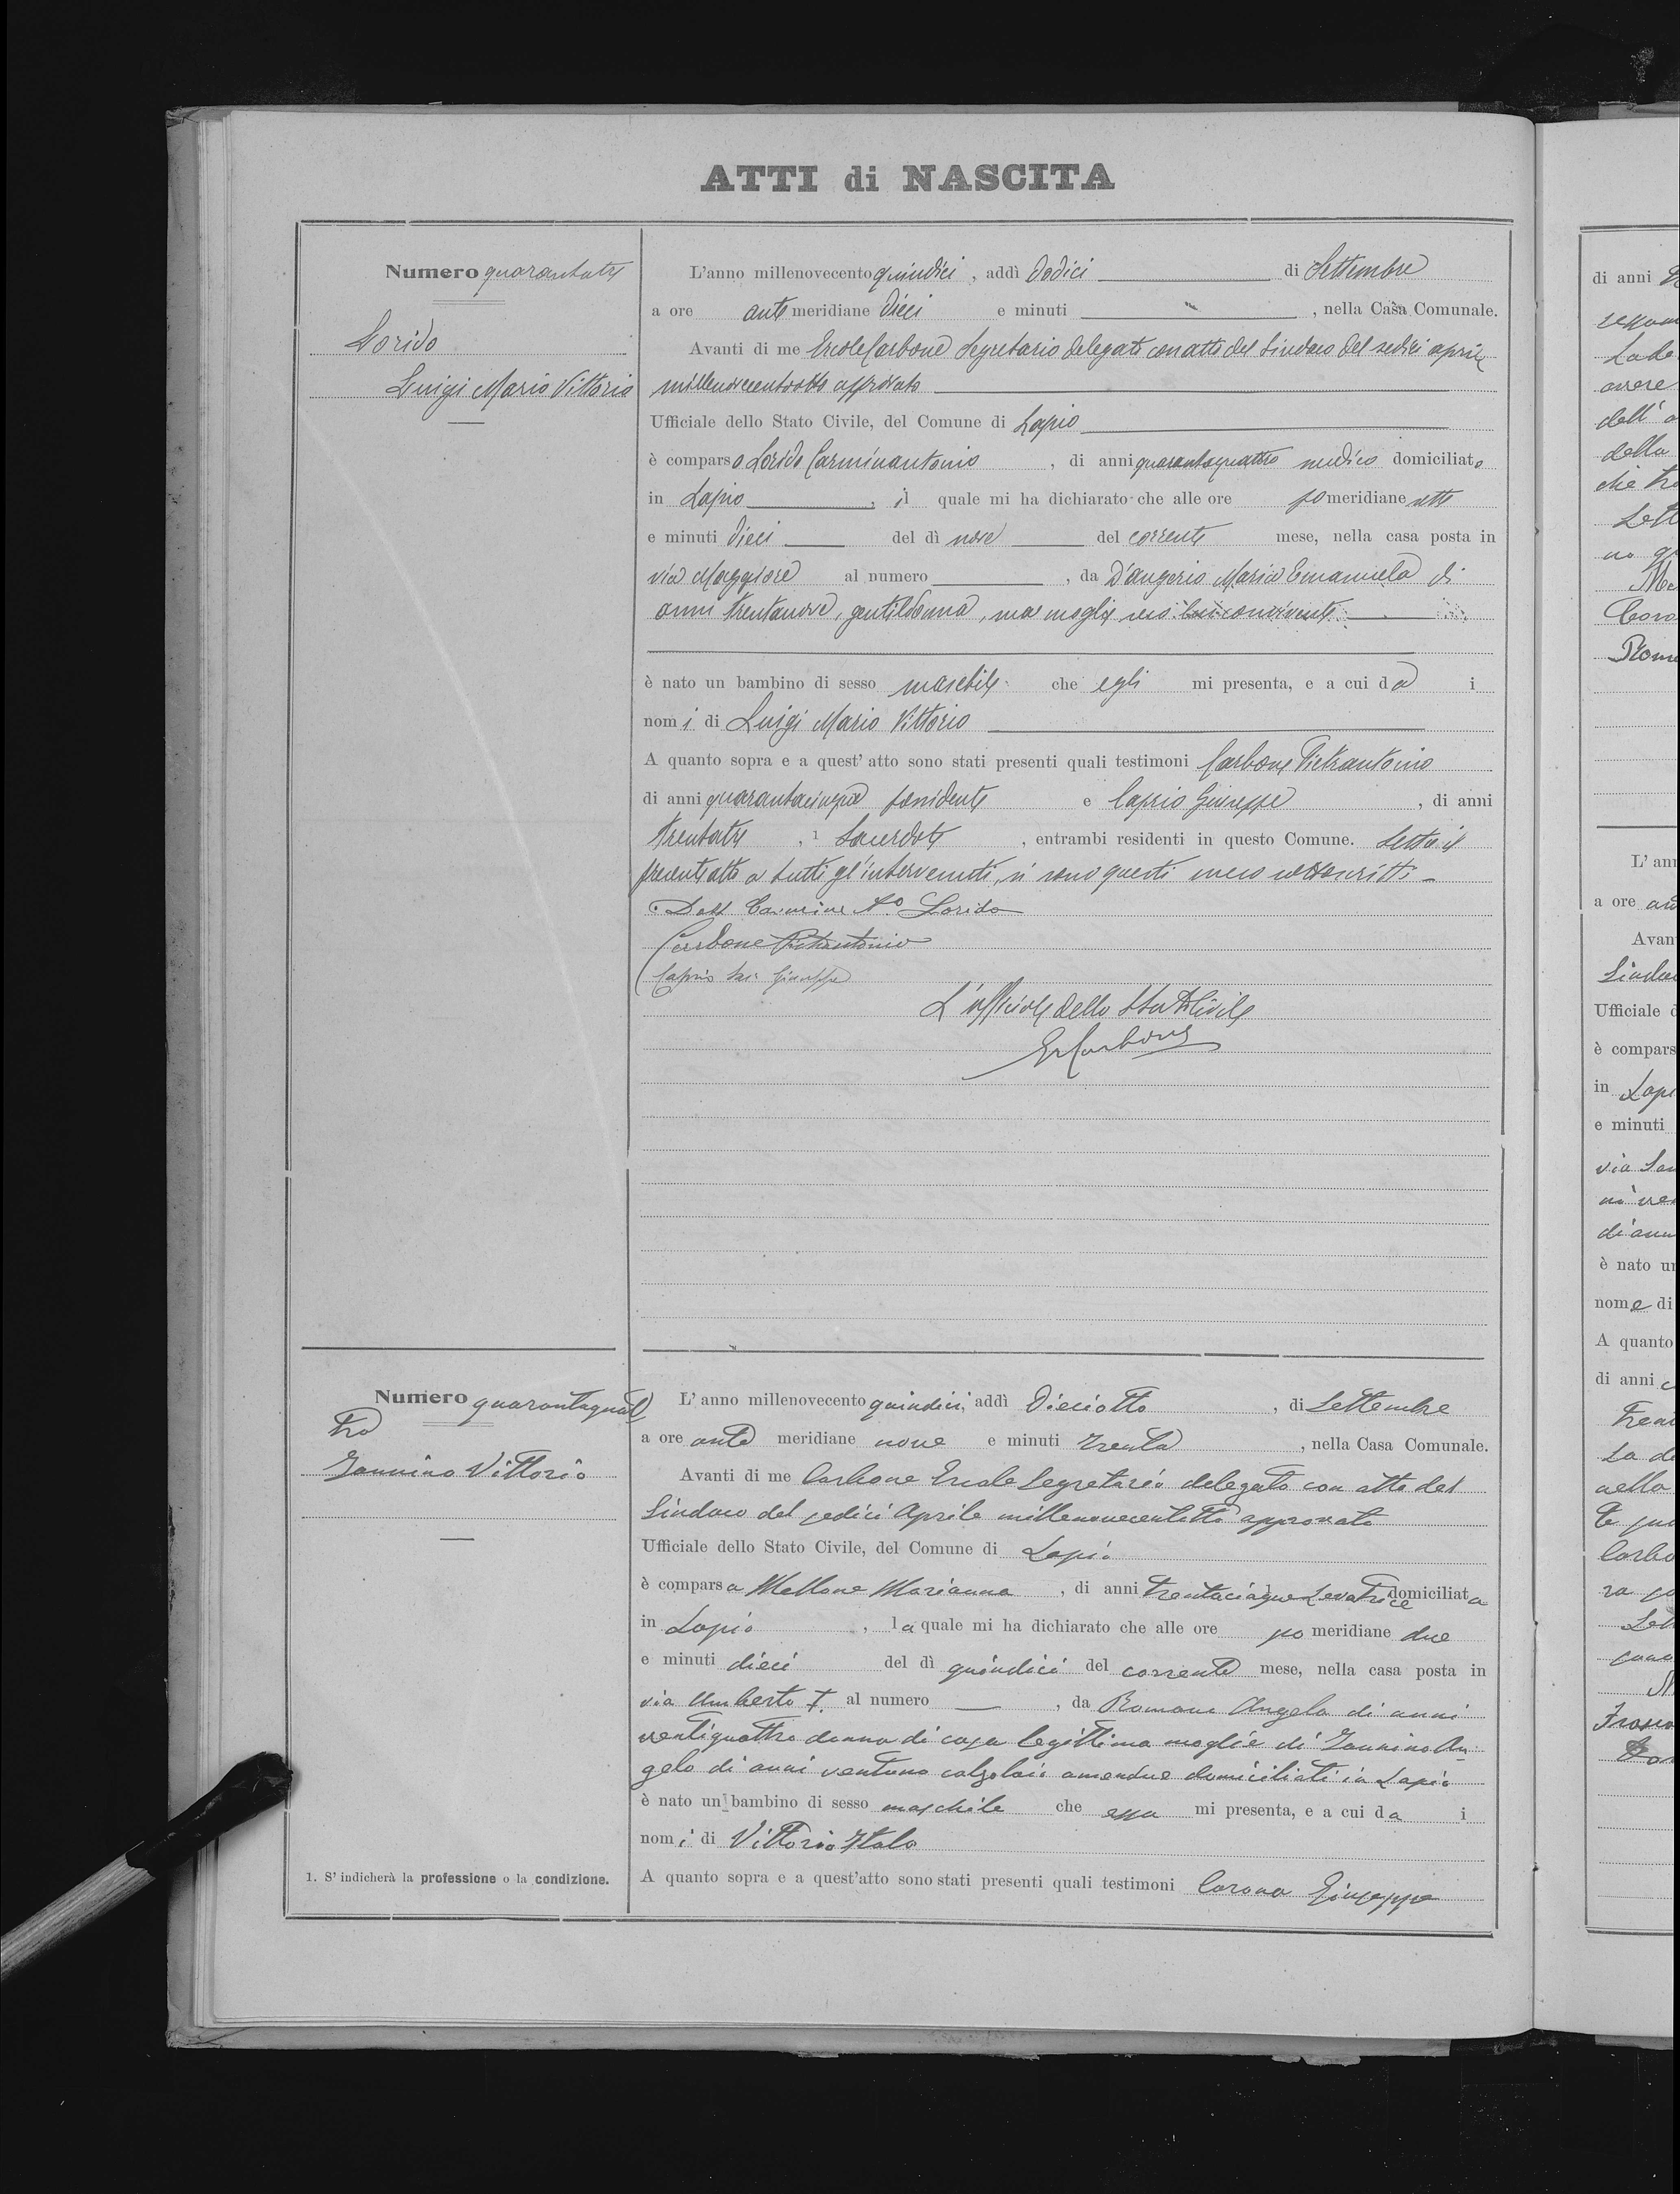 ATTI di NASCITA
Numero quarantatre
Lorido
Luigi Mario Vittorio
L'anno millenovecento quindici, addì dodici di Settembre
a ore ante meridiane dieci e minuti , nella Casa Comunale.
Avanti di me Ercole Carbone Segretario delegato con atto del Sindaco del sedici aprile
millenovecentootto approvato
Ufficiale dello Stato Civile, del Comune di Lapio
è comparso Lorido Carminantonio, di anni quarantaquattro medico domiciliato
in Lapio, il quale mi ha dichiarato che alle ore pomeridiane sette
e minuti dieci del dì nove del corrente mese, nella casa posta in
via Maggiore al numero , da D'angerio Maria Emanuela di
anni trentanove, gentildonna, sua moglie seco lui convivente
è nato un bambino di sesso maschile che egli mi presenta, e a cui dà i
nomi di Luigi Mario Vittorio
A quanto sopra e a quest'atto sono stati presenti quali testimoni Carbone Pietrantonio
di anni quarantacinque possidente e Caprio Giuseppe, di anni
trentatre, 1 Sacerdote, entrambi residenti in questo Comune. Letto il
presente atto a tutti gl'intervenuti, si sono questi meco sottoscritti
Dott Carmine A.º Lorido
Carbone Pietrantonio
Caprio Sac Giuseppe
L'ufficiale dello Stato Civile
Er Carbone
Numero quarantaquat
tro
Iannino Vittorio
L'anno millenovecento quindici, addì Dieciotto, di Settembre
a ore ante meridiane nove e minuti trenta, nella Casa Comunale.
Avanti di me Carbone Ercole Segretario delegato con atto del
Sindaco del sedici Aprile millenovecentotto approvato
Ufficiale dello Stato Civile, del Comune di Lapio
è comparsa Mellone Marianna, di anni trentacinque Levatrice domiciliata
in Lapio, la quale mi ha dichiarato che alle ore po meridiane due
e minuti dieci del dì quindici del corrente mese, nella casa posta in
via Umberto I. al numero , da Romano Angela di anni
ventiquattro donna di casa legittima moglie di Iannino An
gelo di anni ventuno calzolaio amendue domiciliati in Lapio
è nato un bambino di sesso maschile che essa mi presenta, e a cui da i
nomi di Vittorio Italo
A quanto sopra e a quest'atto sono stati presenti quali testimoni Carova Giuseppe
1. S'indicherà la professione o la condizione.
di anni
L'an
a ore
Avan
Sinda
Ufficiale d
è compars
in Lapi
e minuti
è nato un
nome di
A quanto
di anni